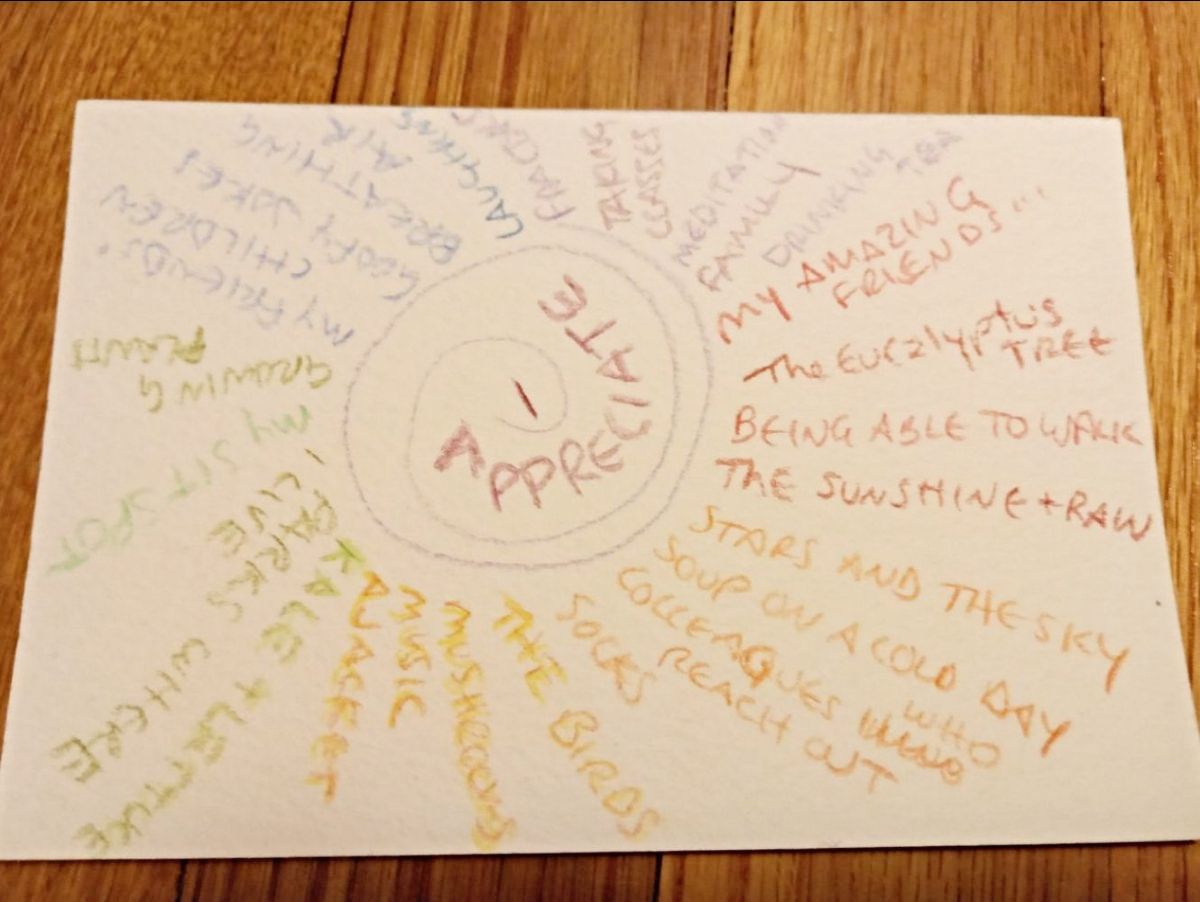 I
APPRECIATE
MY AMAZING
FRIENDS...
The EUCalyptus
TREE
BEING ABLE TO WALK
THE SUNSHINE + RAIN
STARS AND THE SKY
SOUP ON A COLD DAY
COLLEAGUES WHO
REACH OUT
SOCKS
THE BIRDS
MUSHROOMS
MUSIC
A JACKET
KALE + LETTUCE
PARKS WHERE
I LIVE
MY SIT SPOT
GROWING
PLANTS
MY FRIENDS'
CHILDREN
GOOFY JOKES
BREATHING
AIR
LAUGHING
TAKING
CLASSES
MEDITATING
FAMILY
DRINKING
TEA